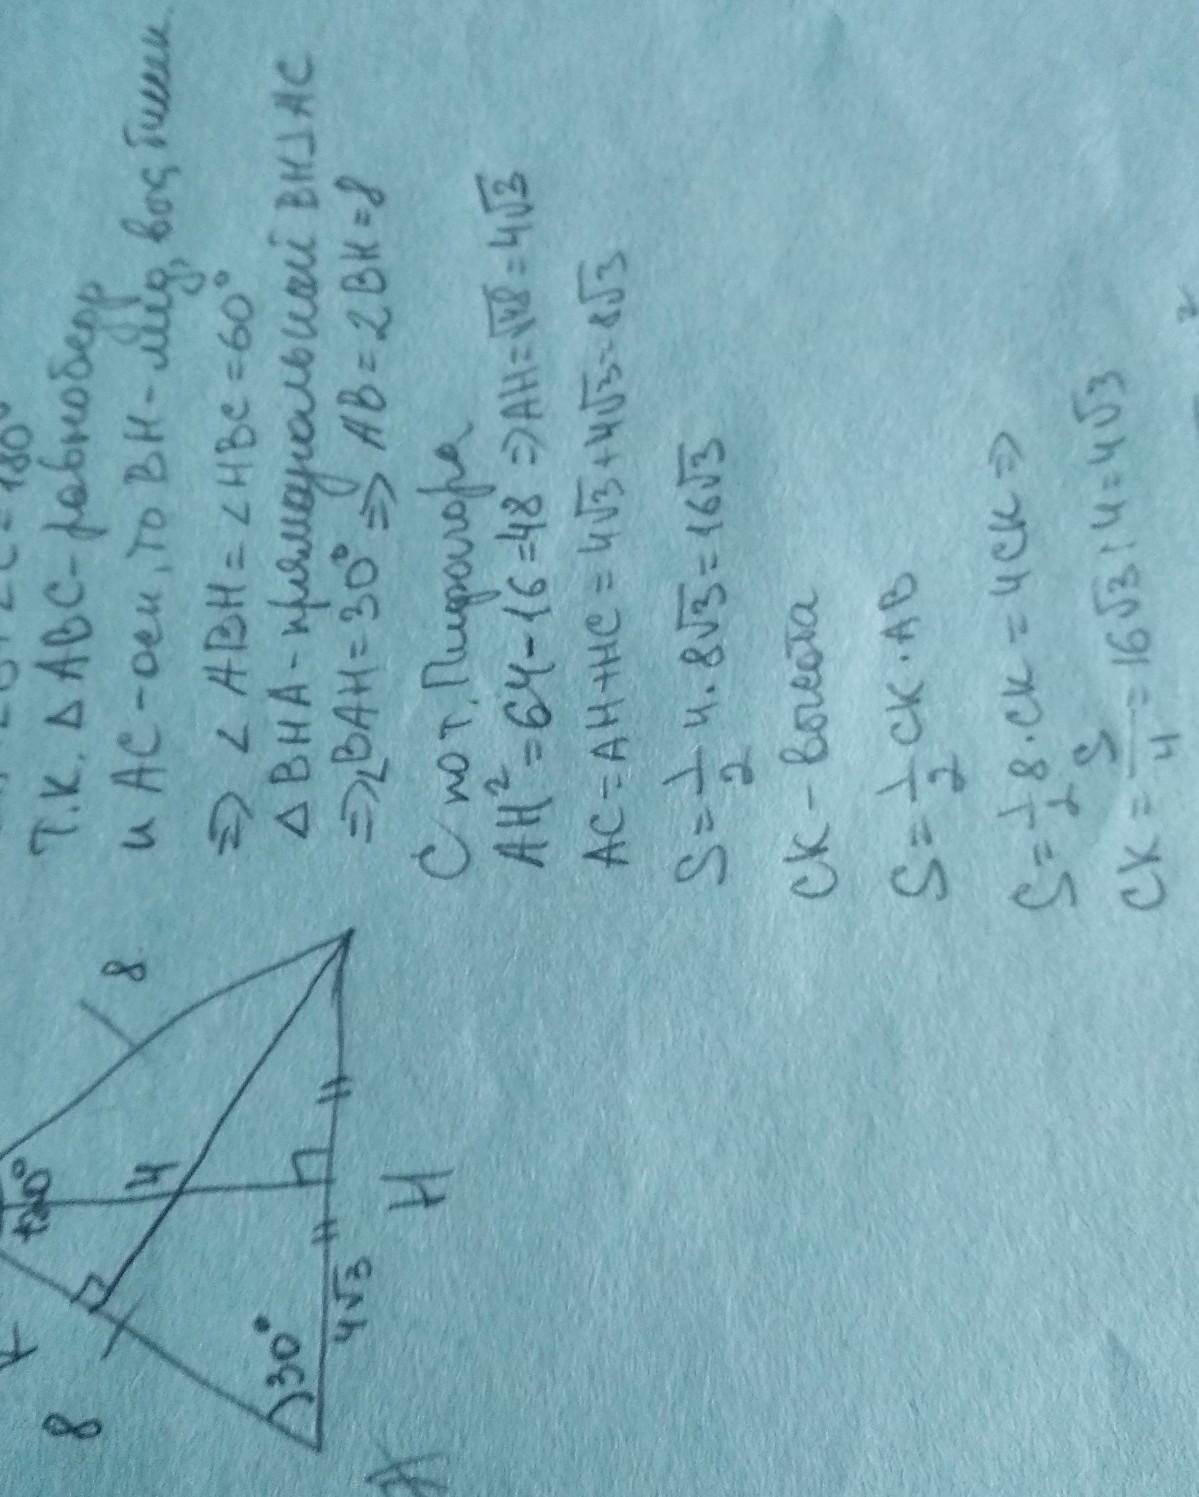 = 180°
Т.К. Δ ABC - равнобедр
и AC - осн, то BH - мед, выс, бисс.
⇒ ∠ ABH = ∠ HBC = 60°
Δ BHA - прямоугольный BH⊥AC
⇒ ∠BAH = 30° ⇒ AB = 2BH = 8
С по т. Пифагора
AH² = 64 - 16 = 48 ⇒ AH = √48 = 4√3
AC = AH + HC = 4√3 + 4√3 = 8√3
S = 1/2 4 · 8√3 = 16√3
CK - высота
S = 1/2 CK · AB
S = 1/2 8 · CK = 4CK ⇒
CK = S/4 = 16√3 : 4 = 4√3
8
K
120°
8
4
30°
4√3
H
A